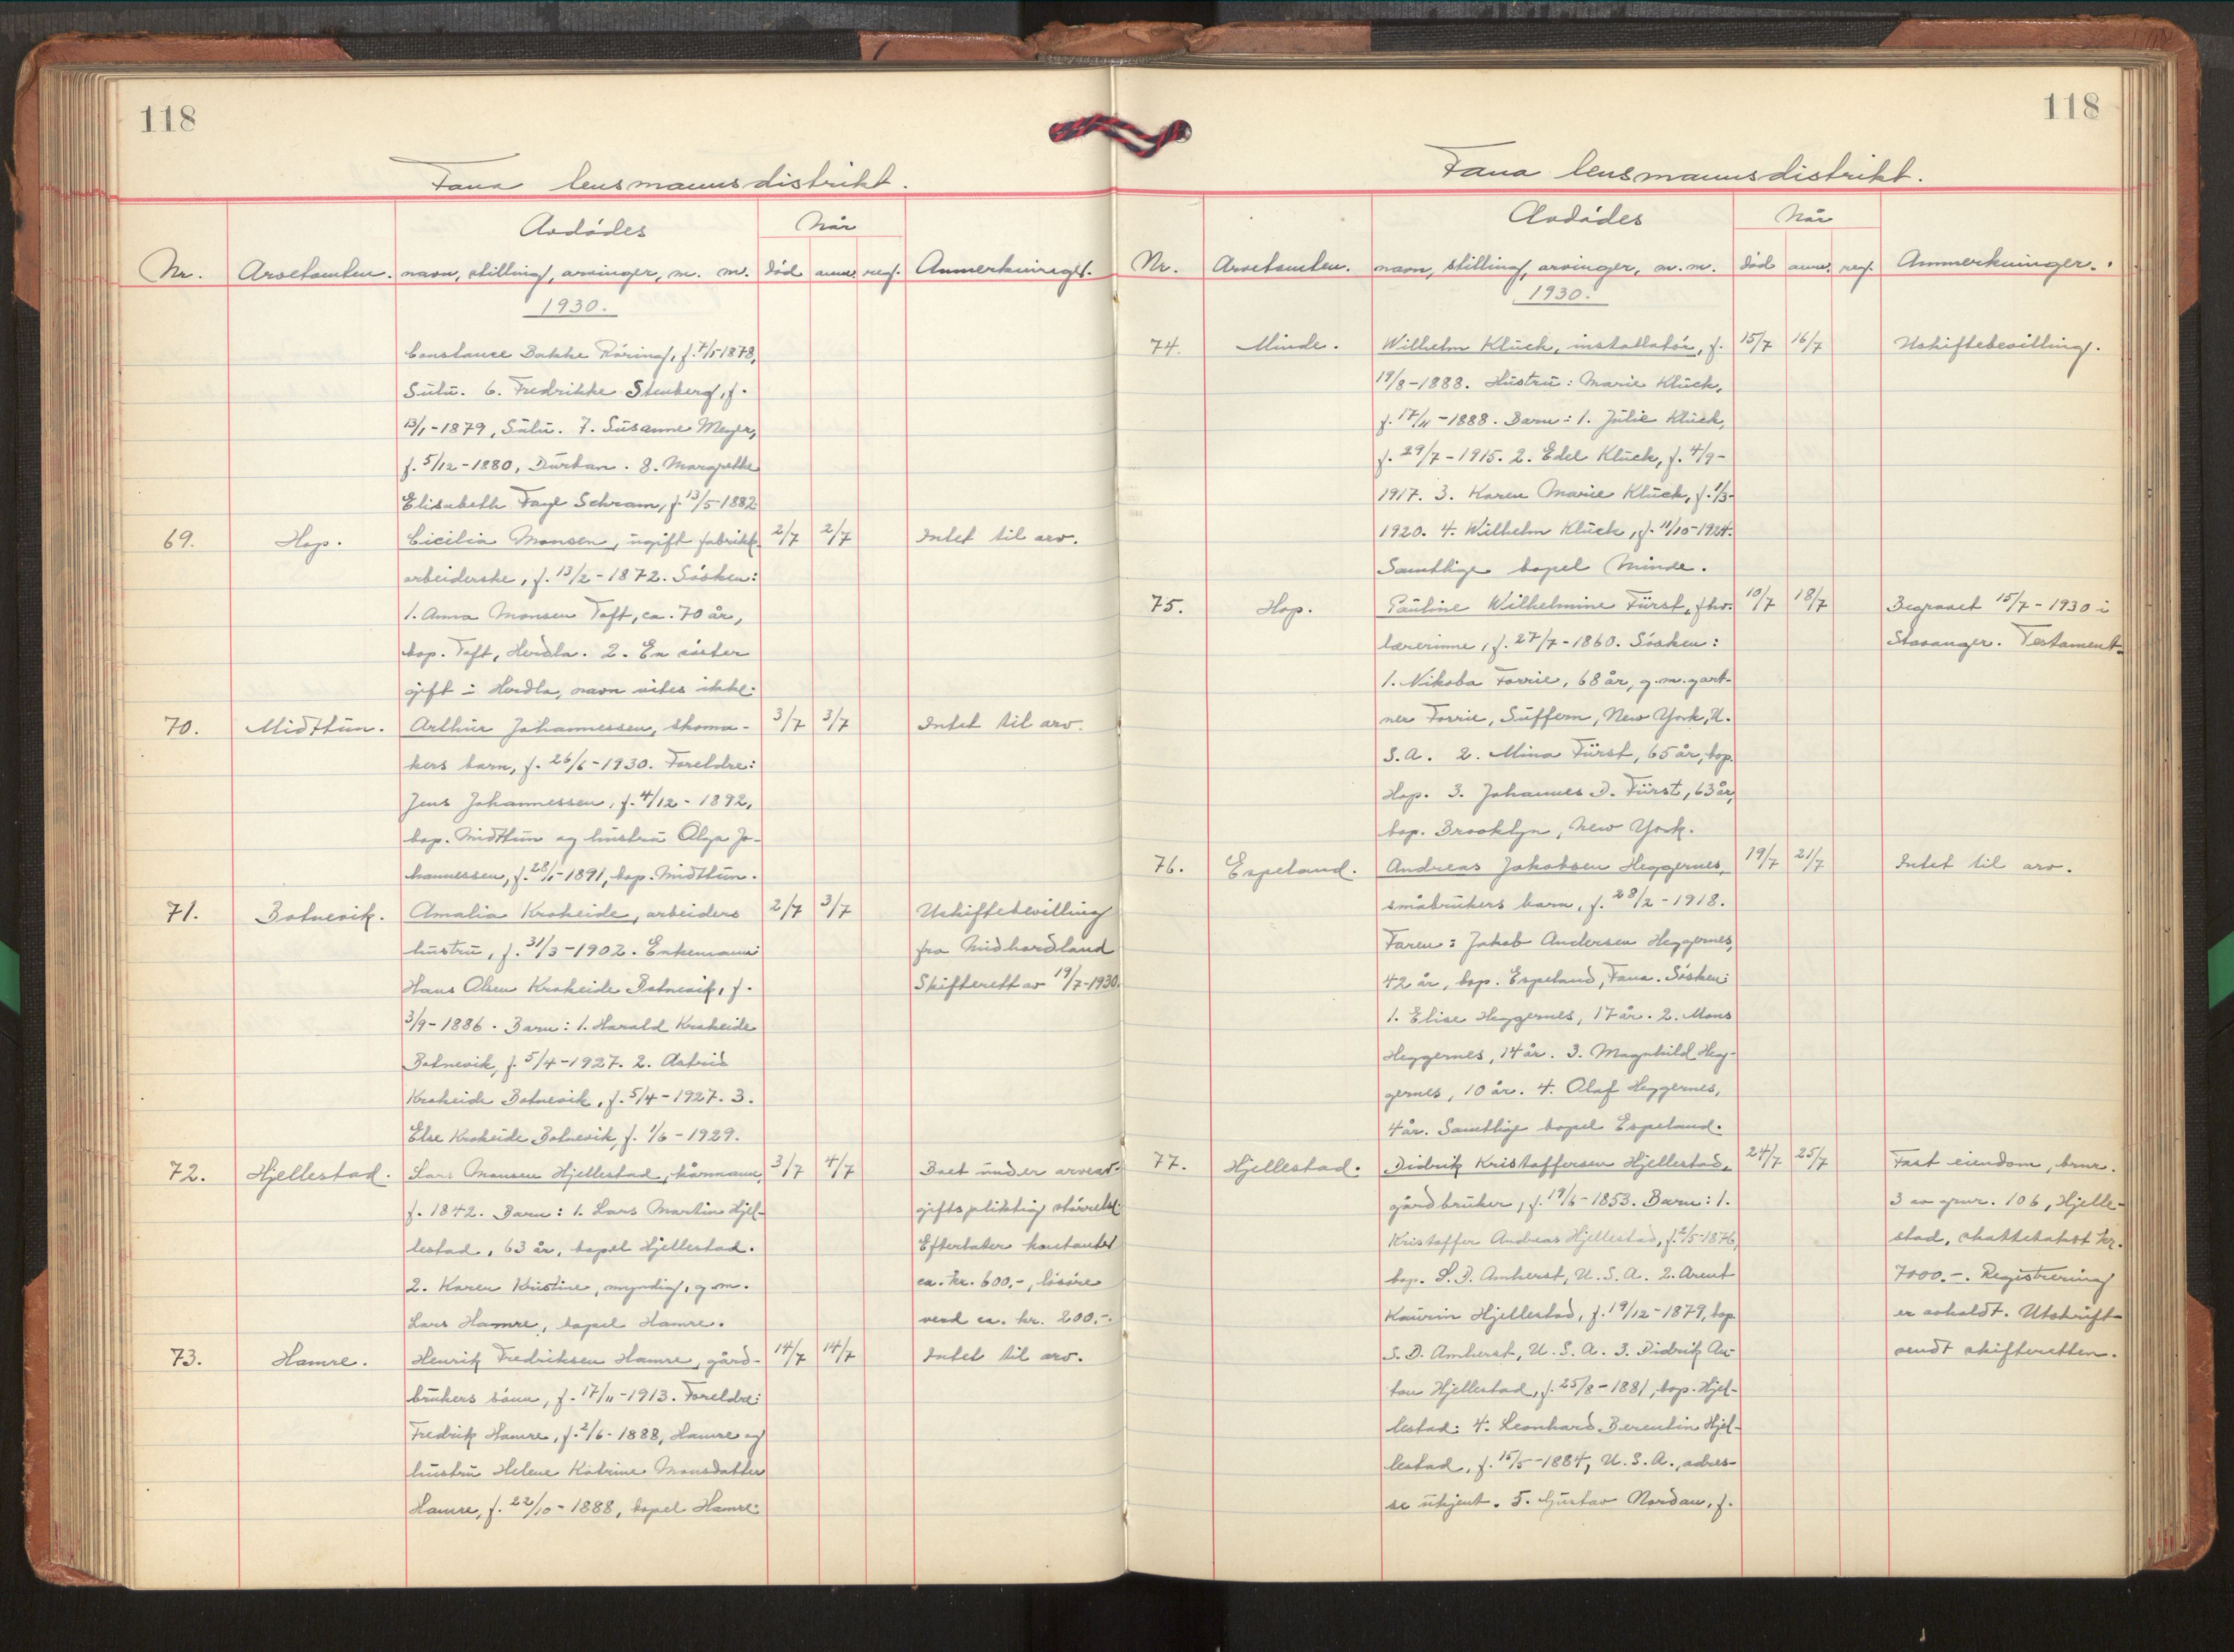 118
Fana lensmannsdistrikt.
Avdødes
Når
Nr. Arvetomten. navn, stilling, arvinger, m. m. død anm. reg. Anmerkninger.
1930.
Constance Bakke Röring, f. 7/5 1878,
Sulu. 6. Fredrikke Stenberg, f.
13/1-1879, Sulu. 7. Susanne Meyer,
f. 5/12-1880, Durban. 8. Margrethe
Elisabeth Faye Schram, f. 13/5-1882
69. Hop. Cicilia Monsen, ugift fabrikk- 2/7 2/7 Intet til arv.
arbeiderske, f. 13/2-1872. Søsken:
1. Anna Monsen Toft, ca. 70 år,
bop. Toft, Herdla. 2. En søster
gift i Herdla, navn vites ikke.
70. Midttun. Arthur Johannessen, skoma- 3/7 3/7 Intet til arv.
kers barn, f. 26/6-1930. Foreldre:
Jens Johannessen, f. 4/12-1892,
bop. Midttun og hustru Olga Jo-
hannessen, f. 28/1-1891, bop. Midttun.
71. Botnevik. Amalia Krokeide, arbeiders 2/7 3/7 Uskiftebevilling
hustru, f. 31/3-1902. Enkemann: fra Midhordland
Hans Olsen Krokeide Botnevik, f. Skifterett av 19/7-1930.
3/9-1886. Barn: 1. Harald Krokeide
Botnevik, f. 5/4-1927. 2. Astrid
Krokeide Botnevik, f. 5/4-1927. 3.
Else Krokeide Botnevik, f. 1/6-1929.
72. Hjellestad. Lars Monsen Hjellestad, kårmann, 3/7 4/7 Boet under arveav-
f. 1842. Barn: 1. Lars Martin Hjel- giftspliktig størrelse.
lestad, 63 år, bopel Hjellestad. Efterlater kontanter
2. Karen Kristine, myndig, g. m. ca. kr. 600.-, løsøre
Lars Hamre, bopel Hamre. verd ca. kr. 200.-.
73. Hamre. Henrik Fredriksen Hamre, gård- 14/7 14/7 Intet til arv.
brukers sønn, f. 17/11-1913. Foreldre:
Fredrik Hamre, f. 2/6-1888, Hamre og
hustru Helene Katrine Monsdatter
Hamre, f. 22/10-1888, bopel Hamre.
118
Fana lensmannsdistrikt.
Avdødes
Når
Nr. Arvetomten. navn, stilling, arvinger, m. m. død anm. reg. Anmerkninger.
1930.
74. Minde. Wilhelm Klück, installatør, f. 15/7 16/7 Uskiftebevilling.
19/8-1888. Hustru: Marie Klück,
f. 17/11-1888. Barn: 1. Julie Klück,
f. 29/7-1915. 2. Edel Klück, f. 4/9-
1917. 3. Karen Marie Klück, f. 1/3-
1920. 4. Wilhelm Klück, f. 11/10-1924.
Samtlige bopel Minde.
75. Hop. Pauline Wilhelmine Fürst, fhv. 10/7 18/7 Begravet 15/7-1930 i
lærerinne, f. 27/7-1860. Søsken: Stavanger. Testament.
1. Nikoba Forrie, 68 år, g. m. gart-
ner Forrie, Suffern, New York, U.
S. A. 2. Mina Fürst, 65 år, bop.
Hop. 3. Johannes D. Fürst, 63 år,
bop. Brooklyn, New York.
76. Espeland. Andreas Jakobsen Heggernes, 19/7 21/7 Intet til arv.
småbrukers barn, f. 28/2-1918.
Faren: Jakob Andersen Heggernes,
42 år, bop. Espeland, Fana. Søsken:
1. Elise Heggernes, 17 år. 2. Mons
Heggernes, 14 år. 3. Magnhild Heg-
gernes, 10 år. 4. Olaf Heggernes,
4 år. Samtlige bopel Espeland.
77. Hjellestad. Didrik Kristoffersen Hjellestad, 24/7 25/7 Fast eiendom, brnr.
gårdbruker, f. 19/6-1853. Barn: 1. 3 av gnr. 106, Hjelle-
Kristoffer Andreas Hjellestad, f. 2/5-1876, stad, skattetakst kr.
bop. S. D. Amherst, U. S. A. 2. Arent 7000.-. Registrering
Kaurin Hjellestad, f. 19/12-1879, bop. er avholdt. Utskrift
S. D. Amherst, U. S. A. 3. Didrik An- sendt skifteretten.
ton Hjellestad, f. 25/8-1881, bop. Hjel-
lestad. 4. Leonhard Berentin Hjel-
lestad, f. 15/5-1884, U. S. A., adres-
se ukjent. 5. Gustav Nordan, f.